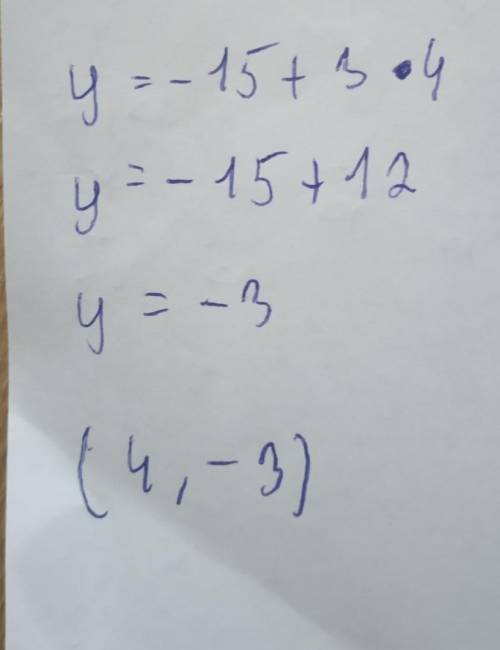 y = -15 + 3 • 4
y = -15 + 12
y = -3
(4, -3)